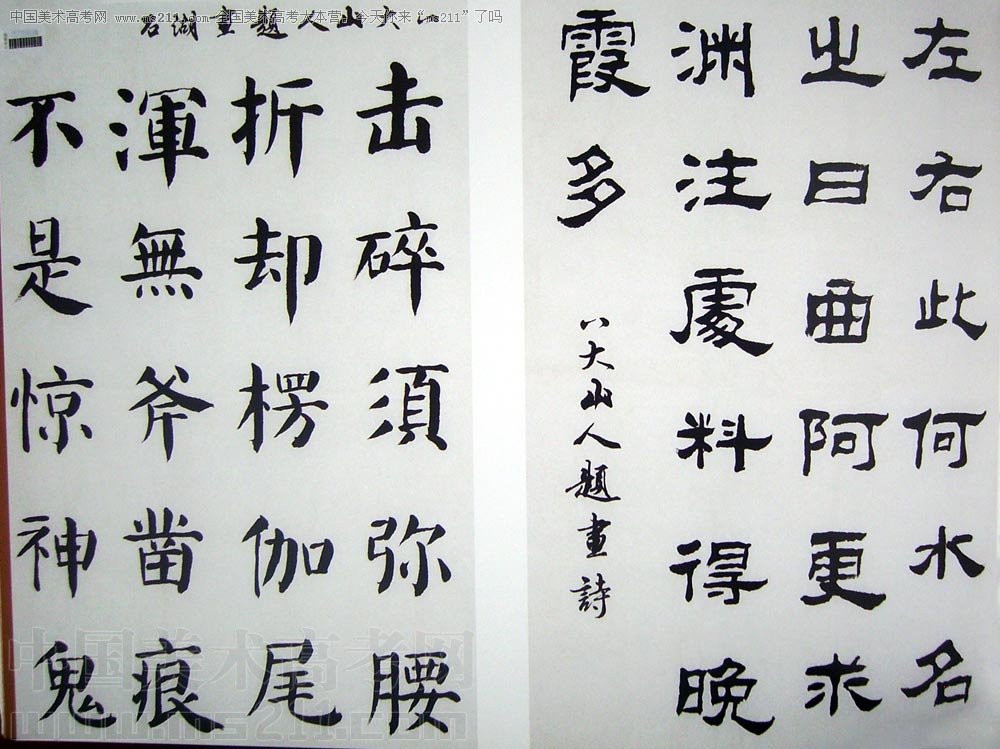 中国美术高考网 www.ms211.com 全国美术高考大本营，今天你来“ms211”了吗
左右此何水名
之曰曲阿更求
渊注處料得晚
霞多
八大山人題畫詩
击碎須弥腰
折却楞伽尾
渾無斧凿痕
不是惊神鬼
八大山人題畫湖石
中国美术高考网
www.ms211.com